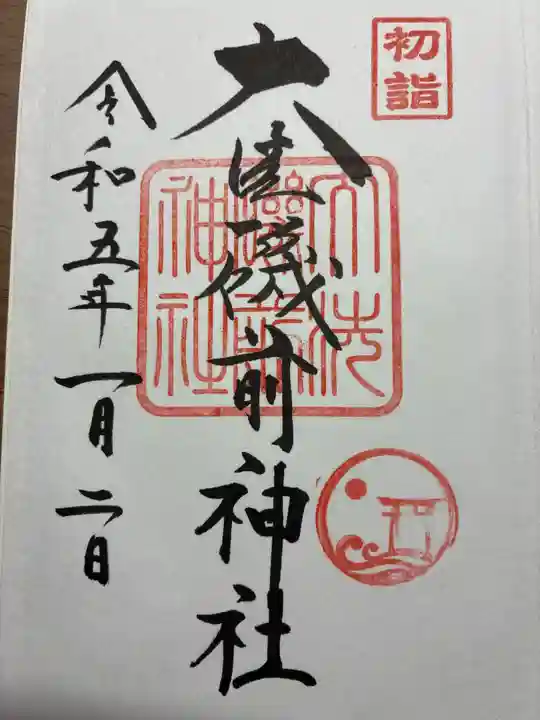 初詣
大洗磯前神社
大洗
磯前
神社
令和五年一月二日